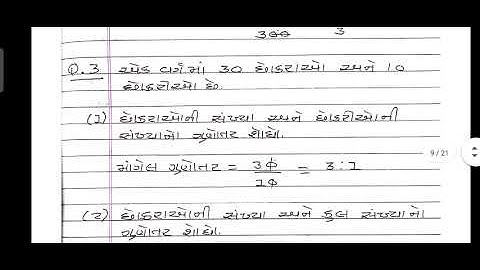 300 3
Q.3 એક વર્ગમાં 30 છોકરાઓ અને 10
છોકરીઓ છે.
(1) છોકરાઓની સંખ્યા અને છોકરીઓની
સંખ્યાનો ગુણોતર શોધો.
માંગેલ ગુણોતર = 30/10 = 3:1
9/21
(2) છોકરાઓની સંખ્યા અને કુલ સંખ્યાનો
ગુણોતર શોધો.